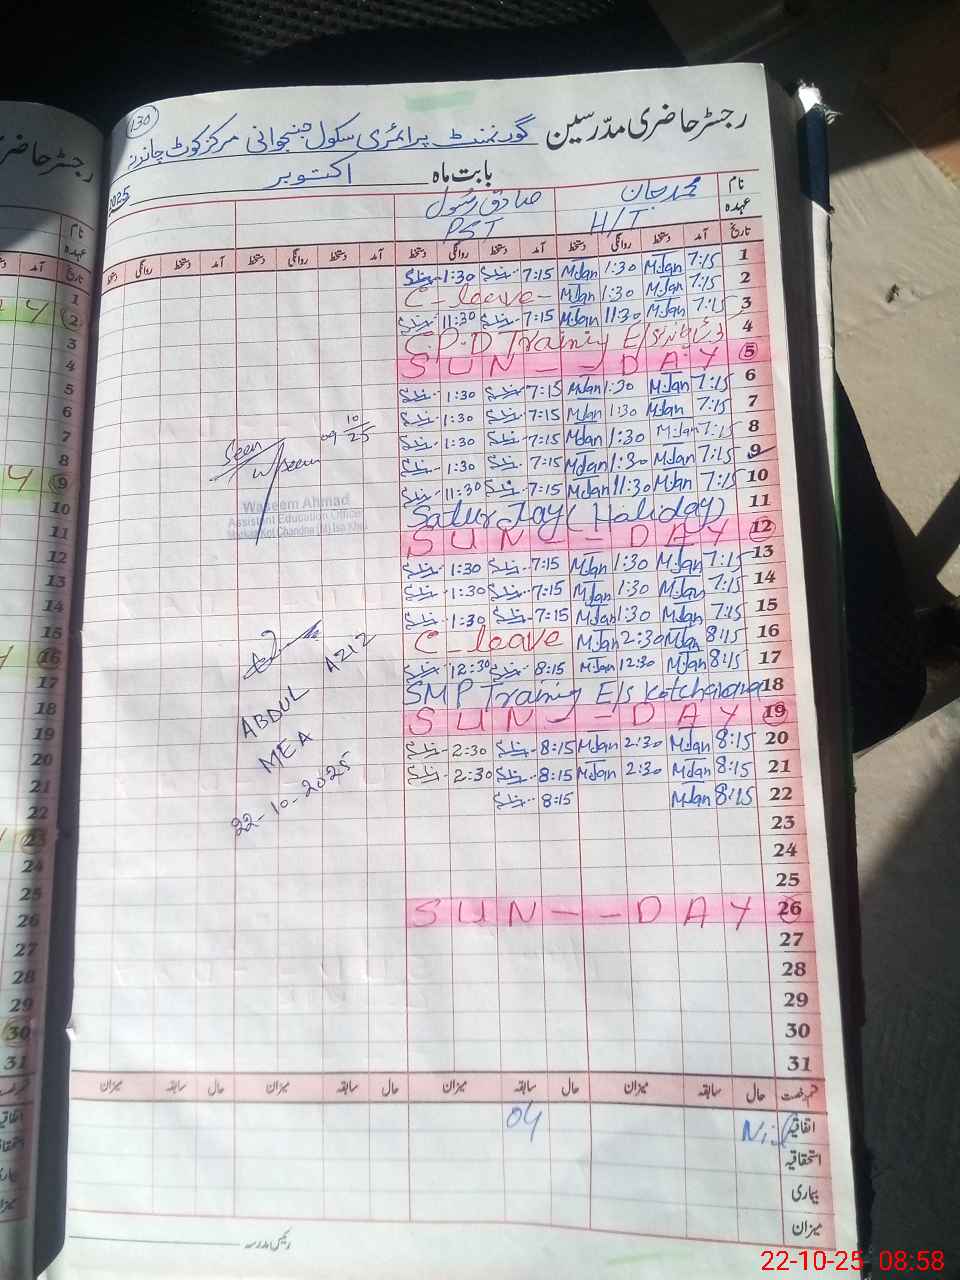 130
رجسٹر حاضری مدرسین گورنمنٹ پرائمری سکول جنجوانی مرکز کوٹ چاندنہ
بابت ماہ اکتوبر 2025
نام محمد جان صادق رسول
عہدہ H/T PST
تاریخ آمد دستخط روانگی دستخط آمد دستخط روانگی دستخط آمد دستخط روانگی دستخط آمد دستخط روانگی دستخط
1 7:15 MJan 1:30 MJan 7:15 1:30
2 7:15 MJan 1:30 MJan C-leave-
3 7:15 MJan 11:30 MJan 7:15 11:30
4 C.P.D Training E/S
5 SUN--DAY
6 7:15 MJan 1:30 MJan 7:15 1:30
7 7:15 MJan 1:30 MJan 7:15 1:30
8 7:15 MJan 1:30 MJan 7:15 1:30
9 7:15 MJan 1:30 MJan 7:15 1:30
10 7:15 MJan 11:30 MJan 7:15 11:30
11 Saturday (Holiday)
12 SUN--DAY
13 7:15 MJan 1:30 MJan 7:15 1:30
14 7:15 MJan 1:30 MJan 7:15 1:30
15 7:15 MJan 1:30 MJan 7:15 1:30
16 8:15 MJan 2:30 MJan C-leave
17 8:15 MJan 12:30 MJan 8:15 12:30
18 SMP Training E/S Kotchandna
19 SUN--DAY
20 8:15 MJan 2:30 MJan 8:15 2:30
21 8:15 MJan 2:30 MJan 8:15 2:30
22 8:15 MJan 8:15
23
24
25
26 SUN--DAY
27
28
29
30
31
Seen
Waseem
09 10/25
Waseem Ahmad
Assistant Education Officer
Markaz Kot Chandna (M) Isa Khel
ABDUL AZIZ
MEA
22-10-2025
قسم رخصت حال سابقہ میزان حال سابقہ میزان حال سابقہ میزان حال سابقہ میزان
اتفاقیہ Nil 04
استحقاقیہ
بیماری
میزان
رئیس مدرسہ
رجسٹر حاضری
نام
عہدہ
تاریخ آمد
1
2
3
4
5
6
7
8
9
10
11
12
13
14
15
16
17
18
19
20
21
22
23
24
25
26
27
28
29
30
31
22-10-25 08:58